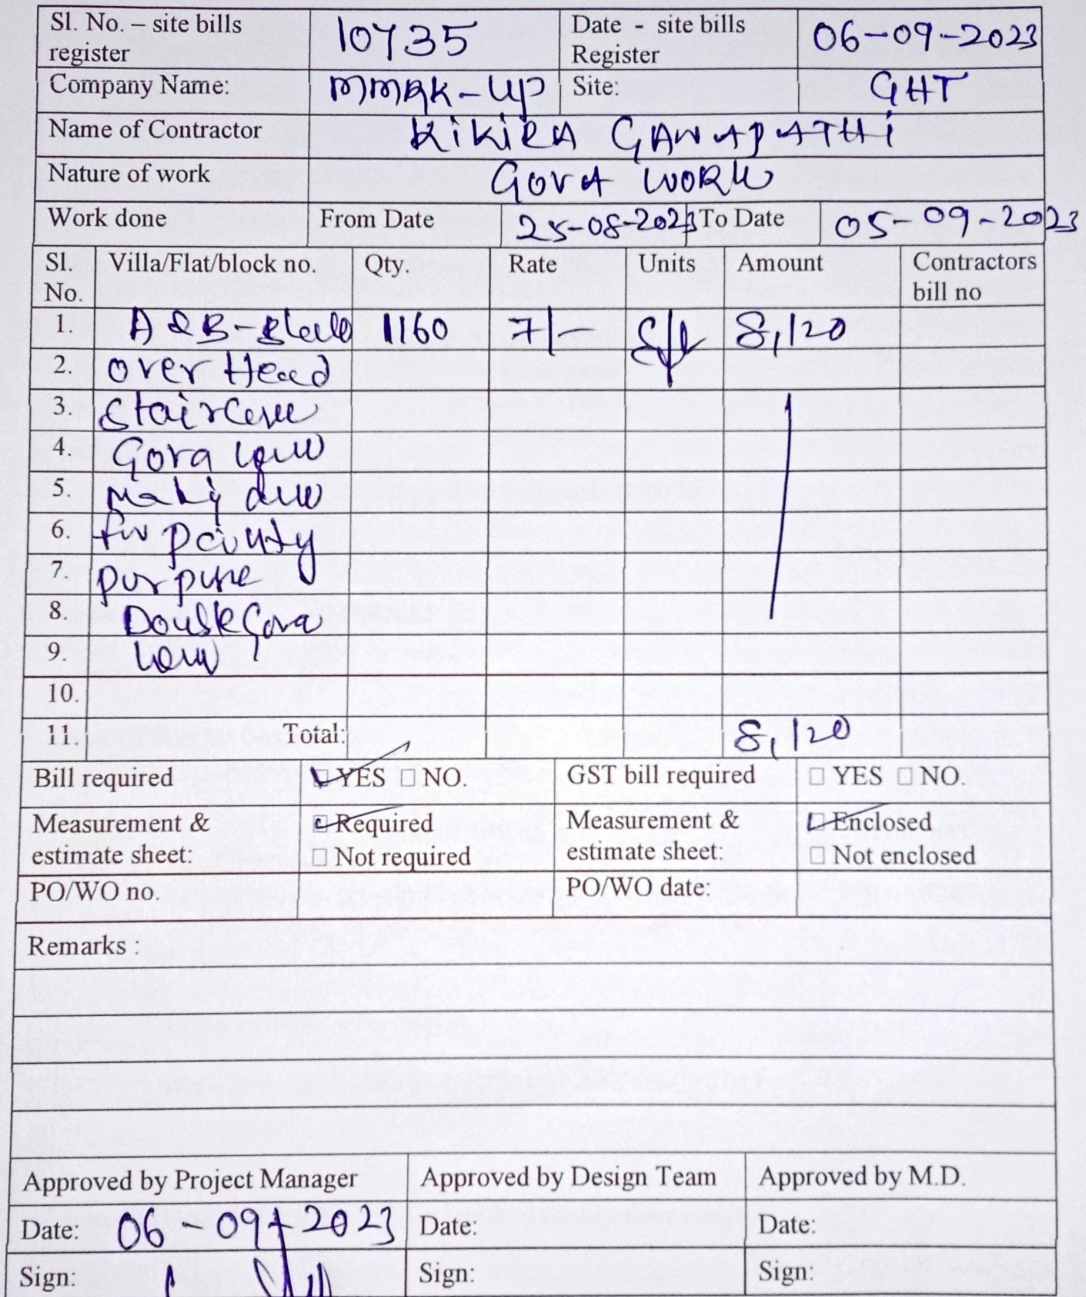 Sl. No. – site bills register 10435 Date - site bills Register 06-09-2023
Company Name: MMRK-UP Site: GHT
Name of Contractor KiKiRA GANAPATHi
Nature of work GOVA WORK
Work done From Date 25-08-2023 To Date 05-09-2023
Sl. No. Villa/Flat/block no. Qty. Rate Units Amount Contractors bill no
1. A & B- 1160 7/- 8,120
2. over Head
3. Stair
4. Gova
5.
6. for
7.
8. Gova
9.
10.
11. Total: 8,120
Bill required YES NO. GST bill required YES NO.
Measurement & estimate sheet: Required Measurement & estimate sheet: Enclosed
Not required Not enclosed
PO/WO no. PO/WO date:
Remarks :
Approved by Project Manager Approved by Design Team Approved by M.D.
Date: 06 09 2023 Date: Date:
Sign: Sign: Sign: